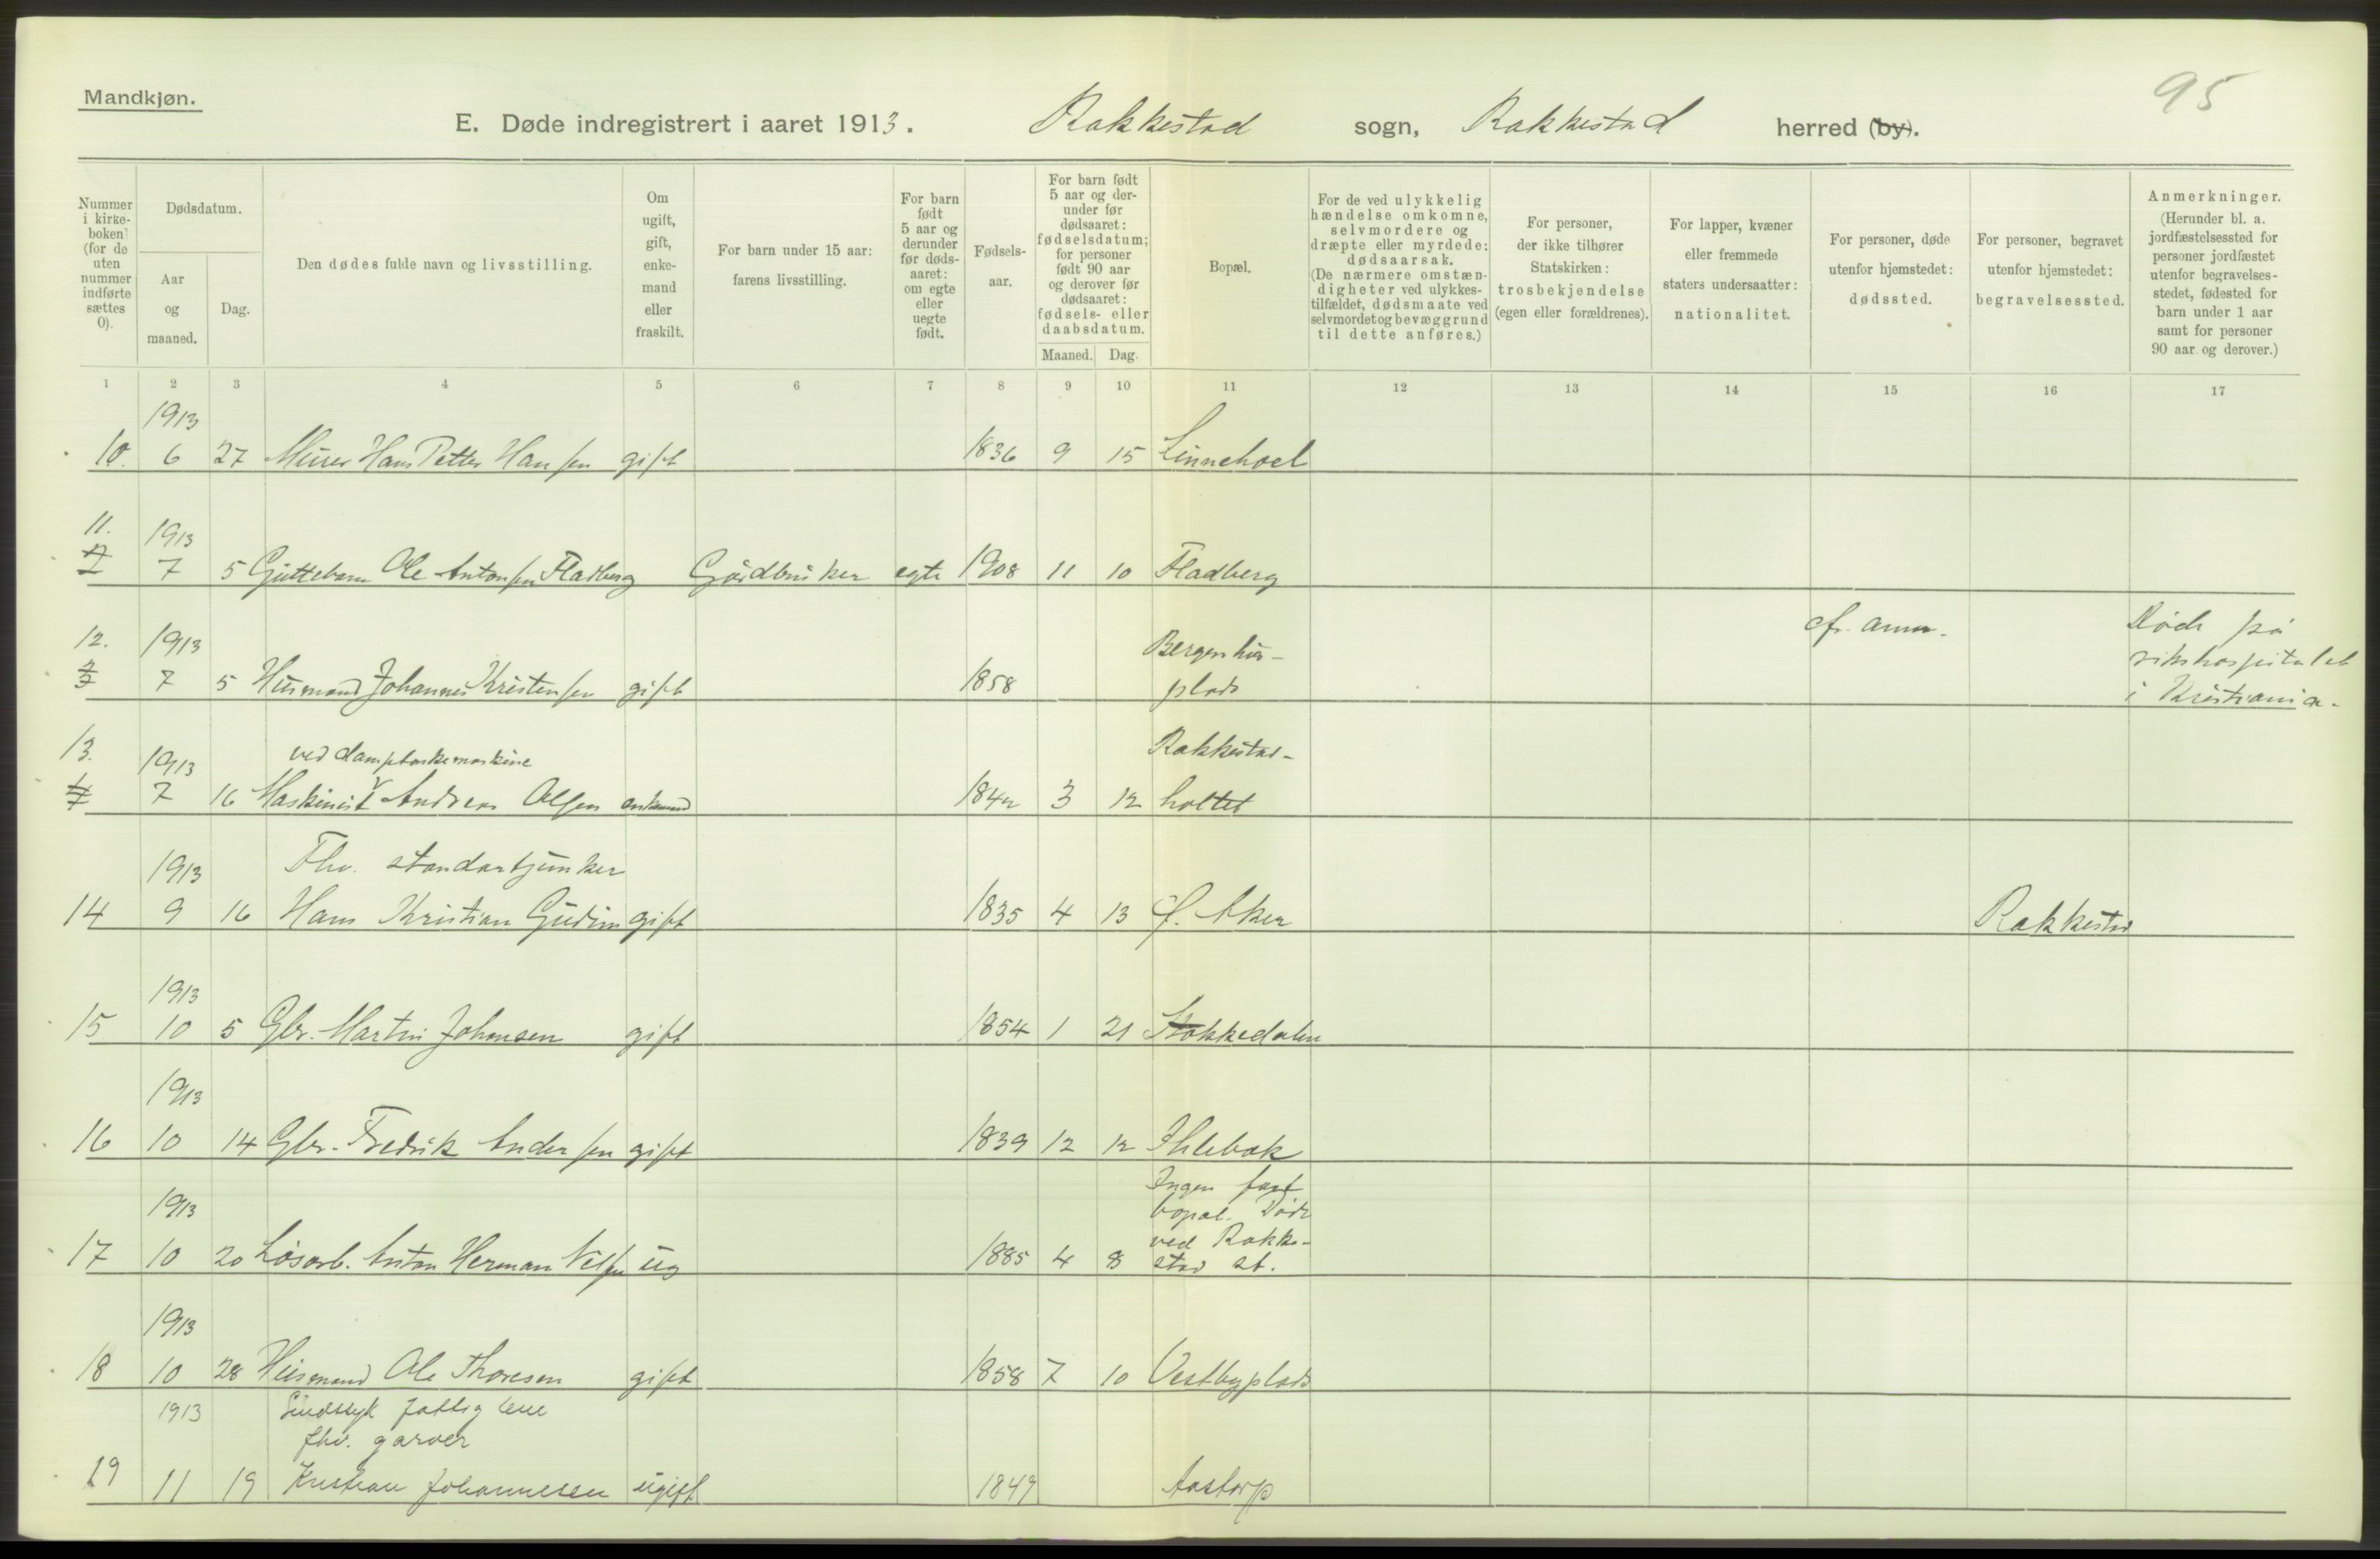 Mandkjøn.
95
E. Døde indregistrert i aaret 1913. Rakkestad sogn, Rakkestad herred (by).
Nummer i kirkeboken (for de uten nummer indførte sættes 0).
Dødsdatum.
Aar og maaned.
Dag.
Den dødes fulde navn og livsstilling.
Om ugift, gift, enkemand eller fraskilt.
For barn under 15 aar: farens livsstilling.
For barn født 5 aar og derunder før dødsaaret: om egte eller uegte født.
Fødselsaar.
For barn født 5 aar og derunder før dødsaaret: fødselsdatum; for personer født 90 aar og derover før dødsaaret: fødsels- eller daabsdatum.
Maaned. Dag.
Bopæl.
For de ved ulykkelig hændelse omkomne, selvmordere og dræpte eller myrdede: dødsaarsak. (De nærmere omstændigheter ved ulykkestilfældet, dødsmaate ved selvmordet og bevæggrund til dette anføres.)
For personer, der ikke tilhører Statskirken: trosbekjendelse (egen eller forældrenes).
For lapper, kvæner eller fremmede staters undersaatter: nationalitet.
For personer, døde utenfor hjemstedet: dødssted.
For personer, begravet utenfor hjemstedet: begravelsessted.
Anmerkninger. (Herunder bl. a. jordfæstelsessted for personer jordfæstet utenfor begravelsesstedet, fødested for barn under 1 aar samt for personer 90 aar og derover.)
1 2 3 4 5 6 7 8 9 10 11 12 13 14 15 16 17
1913
10. 6 27 Murer Hans Petter Hansen gift 1836 9 15 Linnehoel
11. 1913
7 5 Guttebarn Ole Antonsen Fladberg Gårdbruker egte 1908 11 10 Fladberg
12. 1913 Bergenhus- cfr. anm. Døde på
rikshospitalet
7 5 Husmand Johannes Kristensen gift 1858 plads i Kristiania.
13. 1913 ved damptærskemaskine Rakkestad-
7 16 Maskinist Andreas Olsen enkemand 1842 3 12 holtet
1913 Fhv. standartjunker
14 9 16 Hans Kristian Gudim gift 1835 4 13 Ø. Aker Rakkestad
1913
15 10 5 Gbr. Martin Johansen gift 1854 1 21 Stokkedalen
1913
16 10 14 Gbr. Fredrik Andersen gift 1839 12 12 Ihlebæk
1913 Ingen fast
bopæl. Døde
ved Rakke-
17 10 20 Løsarb. Anton Herman Nilsen ug 1885 4 8 stad st.
1913
18 10 28 Husmand Ole Thoresen gift 1858 7 10 Vestbyplads
1913 Sindssyk fattiglem
fhv. garver
19 11 19 Kristian Johannesen ugift 1849 Aastorp